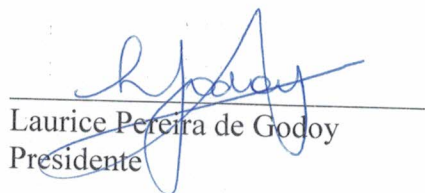 Laurice Pereira de Godoy
Presidente